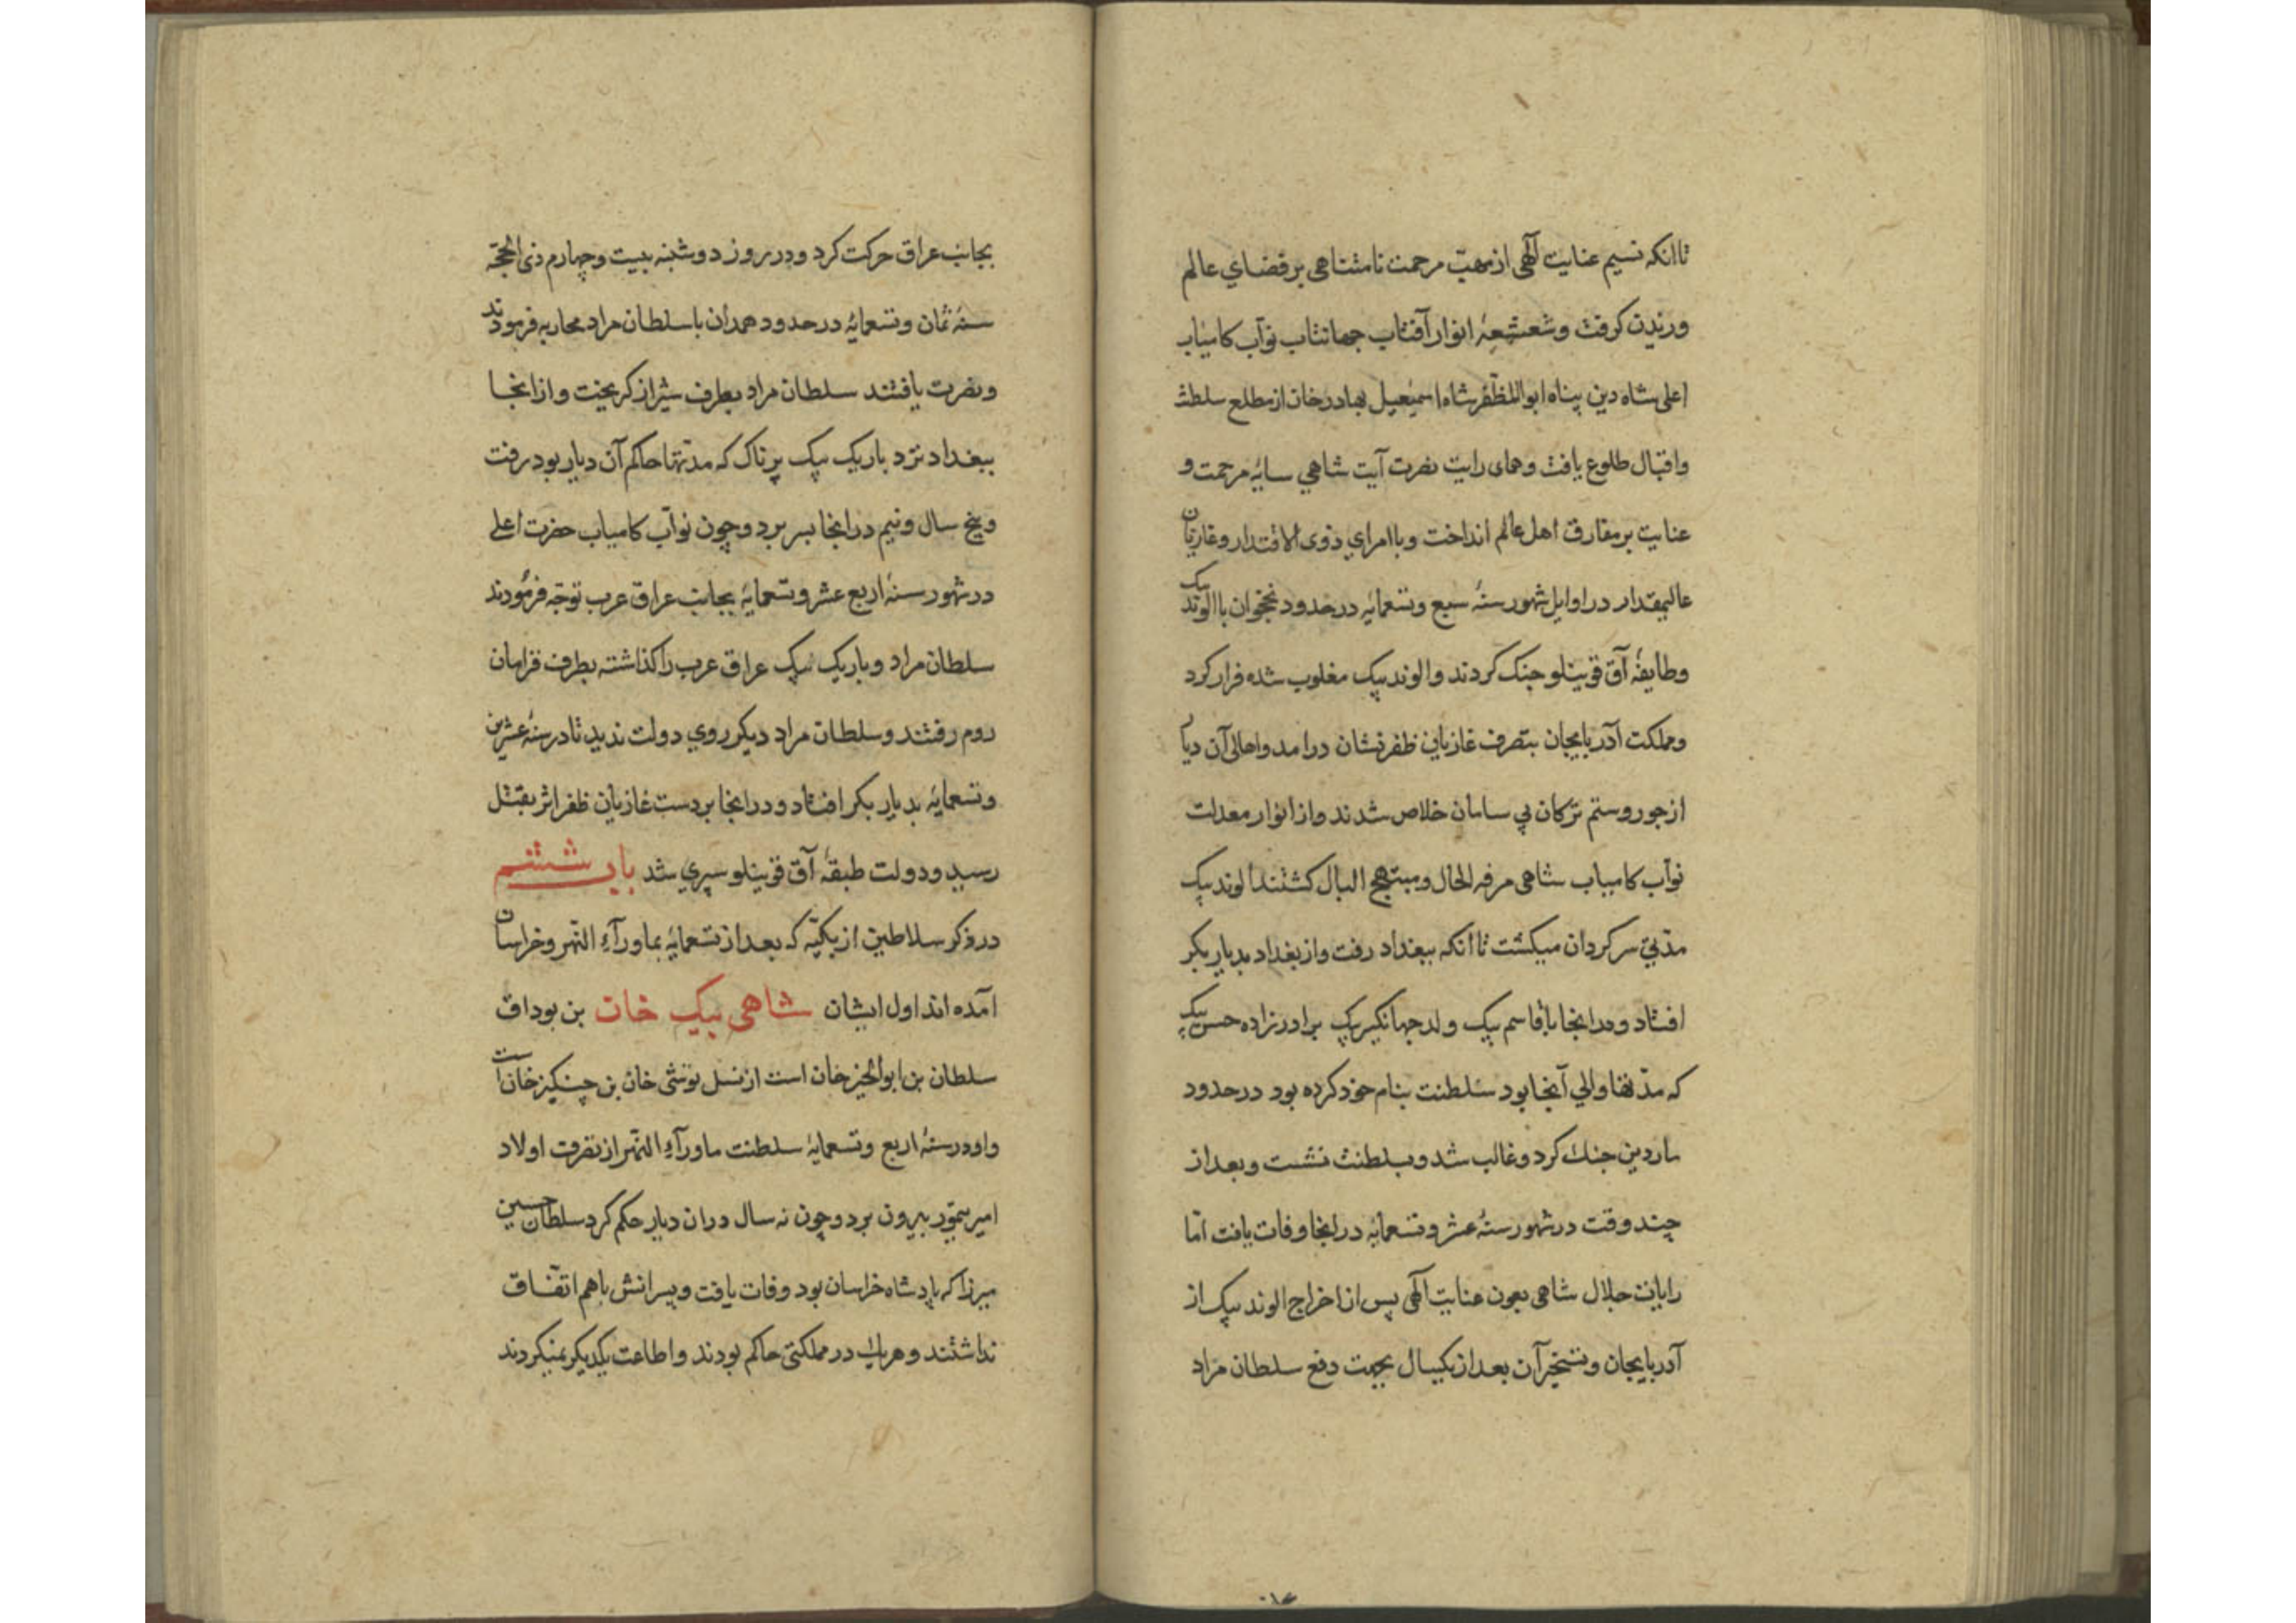 تا انکه نسیم عنایت آلهی از مهب مرحمت نامتناهی بر فضاي عالم
ورنیدن کرفت و شعشعهٔ انوار آفتاب جهانتاب نوآب کامیاب
اعلی شاه دین پناه ابوالمظفّر شاه اسمٰعیل بهادرخان از مطلع سلطنت
واقبال طلوع یافت وهمای رایت نصرت آیت شاهي سایۀ مرحمت و
عنایت بر مفارق اهل عالم انداخت وبا امراي ذوی الاقتدار وغازیان
عالیمقدار در اوایل شهور سنۀ سبع وتسعمایه در حدود نخجوان با الوند بیک
وطایفۀ آق قوینلو جنک کردند والوند بیک مغلوب شده فرار کرد
ومملکت آذربایجان بتصرف غازیان ظفرنشان درامد واهالی آن دیار
از جور وستم ترکان بي سامان خلاص شدند واز انوار معدلت
نوآب کامیاب شاهی مرفه الحال ومبتهج البال کشتند الوند بیک
مدّتي سرکردان میکشت تا انکه ببغداد رفت واز بغداد بدیاربکر
افتاد ودر انجا با قاسم بیک ولد جهانکیر بیک برادرزاده حسن بیک
که مدّتها والي آنجا بود سلطنت بنام خود کرده بود در حدود
ماردین جنك کرد وغالب شد وبسلطنت نشست وبعد از
چند وقت در شهور سنۀ عشر وتسعمایه در انجا وفات یافت امّا
رایات جلال شاهی بعون عنایت آلهی پس از اخراج الوند بیک از
آذربایجان وتسخیر آن بعد از یکسال بجهت دفع سلطان مراد
بجانب عراق حرکت کرد ودر روز دوشنبه بیست وچهارم ذی الحجّه
سنۀ ثمان وتسعمایه در حدود همدان با سلطان مراد محاربه فرمودند
ونصرت یافتند سلطان مراد بطرف شیراز کریخت واز انجا
ببغداد نزد باریک بیک پرناک که مدتها حاکم آن دیار بود رفت
وپنج سال ونیم در انجا بسر برد وچون نوآب کامیاب حضرت اعلی
در شهور سنۀ اربع عشر وتسعمایه بجانب عراق عرب توجّه فرمودند
سلطان مراد وباریک بیک عراق عرب را کذاشته بطرف قرامان
روم رفتند وسلطان مراد دیکر روي دولت ندید تا در سنۀ عشرین
وتسعمایه بدیاربکر افتاد ودر انجا بر دست غازیان ظفر اثر بقتل
رسید ودولت طبقۀ آق قوینلو سپري شد باب ششم
در ذکر سلاطین ازبکیّه که بعد از تسعمایه بماورآء النهر وخراسان
آمده اند اول ایشان شاهی بیک خان بن بوداق
سلطان بن ابوالخیر خان است از نسل توشی خان بن چنکیز خان است
واو در سنۀ اربع وتسعمایه سلطنت ماورآء النهر از تصرف اولاد
امیر تیمور بیرون برد وچون نه سال دران دیار حکم کرد سلطان حسین
میرزا که پادشاه خراسان بود وفات یافت وپسرانش باهم اتفاق
نداشتند وهریك در مملکتی حاکم بودند واطاعت یکدیکر نمیکردند